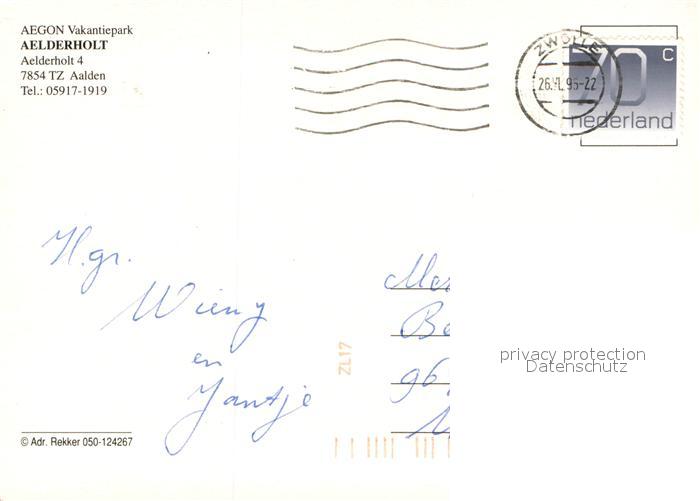 AEGON Vakantiepark
AELDERHOLT
Aelderholt 4
7854 TZ Aalden
Tel.: 05917-1919
ZWOLLE
70 C
nederland
H.gr.
Wieny
en
Jantje
Be
96
ZL17
privacy protection
Datenschutz
© Adr. Rekker 050-124267